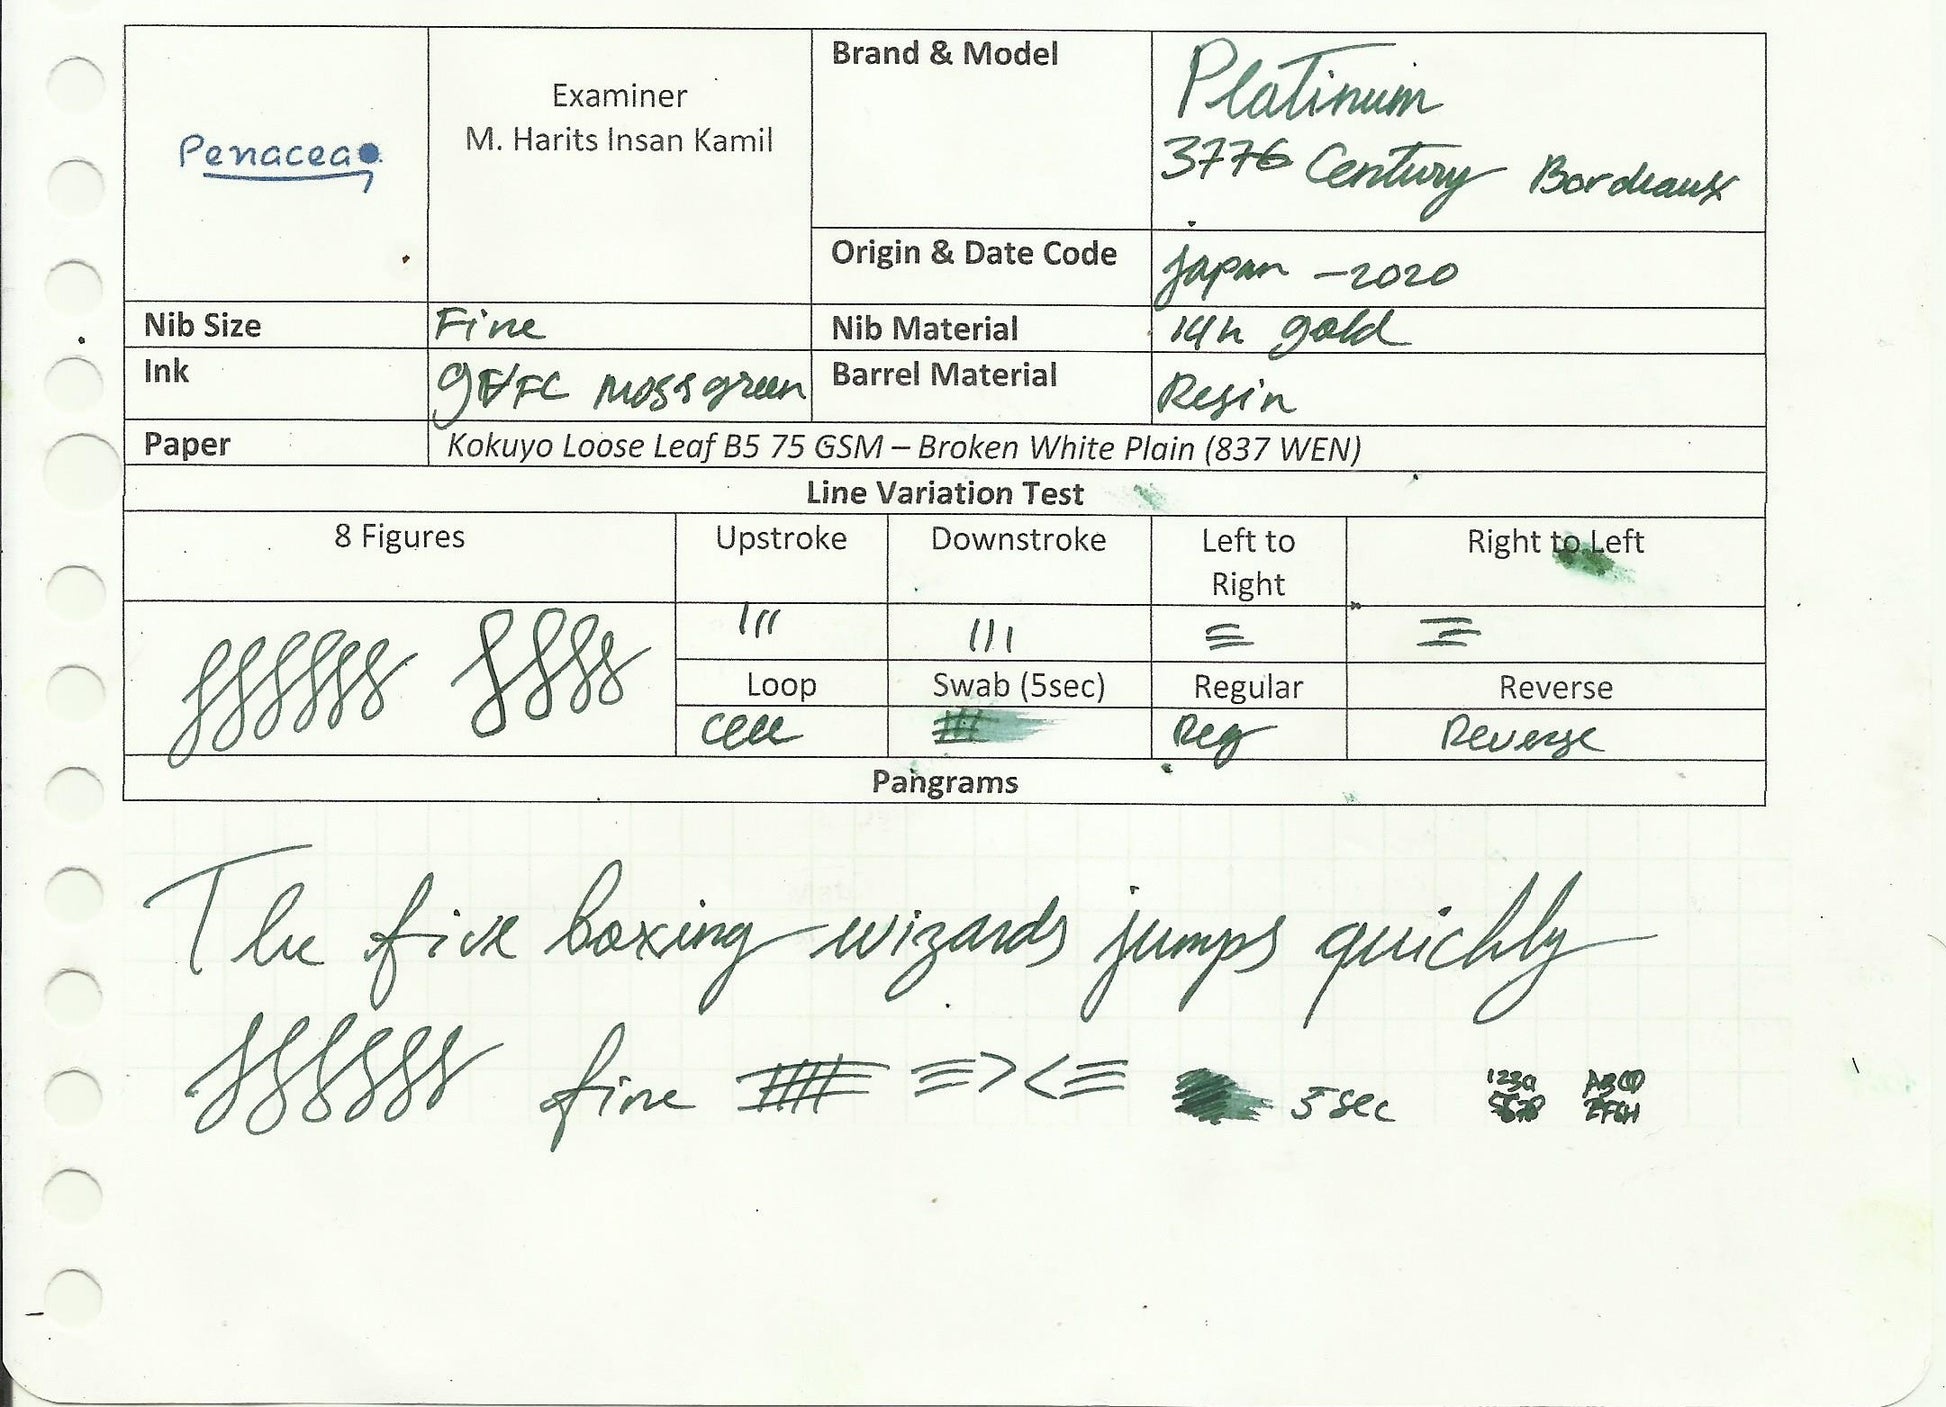 Penacea
Examiner
M. Harits Insan Kamil
Brand & Model
Platinum
3776 Century Bordeaux
Origin & Date Code
Japan - 2020
Nib Size
Fine
Nib Material
14k gold
Ink
moss green
Barrel Material
Resin
Paper
Kokuyo Loose Leaf B5 75 GSM – Broken White Plain (837 WEN)
Line Variation Test
8 Figures
Upstroke
Downstroke
Left to
Right
Right to Left
Loop
Swab (5sec)
Regular
Reverse
Reg
Reverse
Pangrams
The five boxing wizards jumps quickly
fine
5 sec
ABCD
EFGH